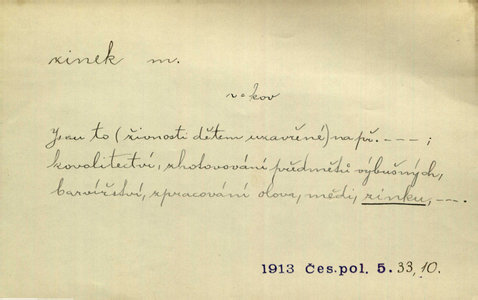 zinek m.
v kov
Jsou to (živnosti dětem uzavřené) na př. – – – ;
kovolitectví, zhotovování předmětů výbušných,
barvířství, zpracování olova, mědi, zinku, – – .
1913 Čes. pol. 5. 33, 10.